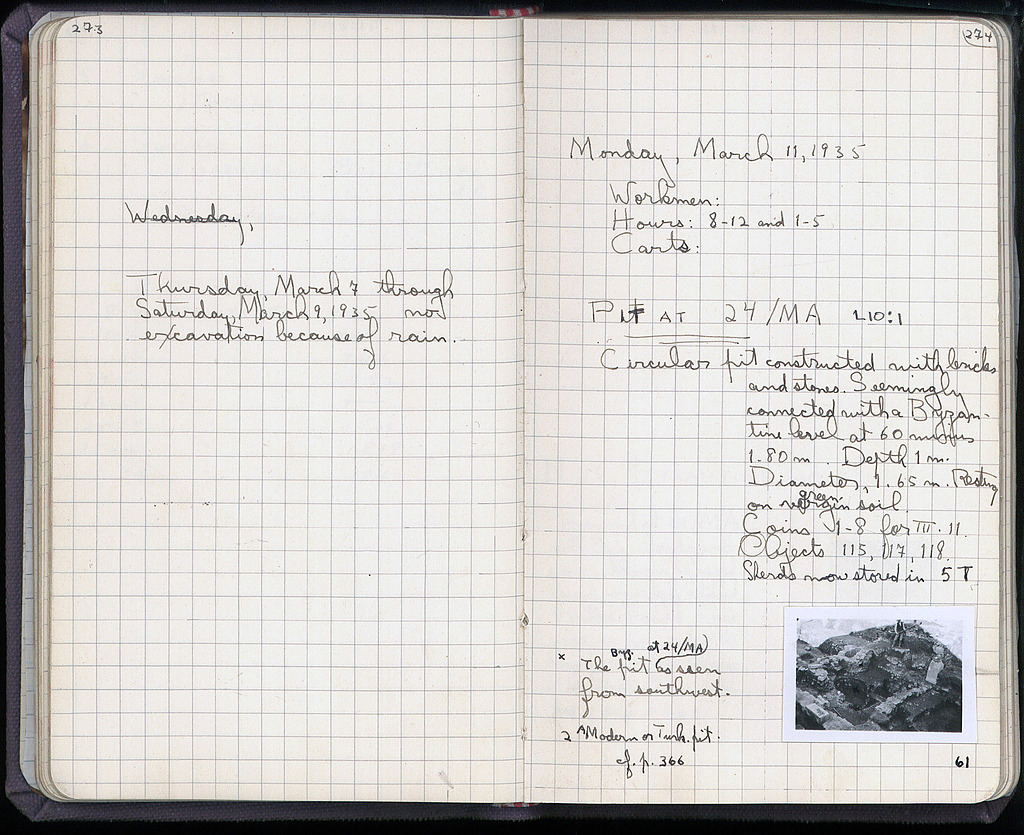 273
Wednesday,
Thursday, March 7 through
Saturday, March 9, 1935 no
excavation because of rain.
274
Monday, March 11, 1935
Workmen:
Hours: 8-12 and 1-5
Carts:
Pit AT 24/MA L10:1
Circular pit constructed with bricks
and stones. Seemingly
connected with a Byzan-
tine level at 60 minus
1.80 m. Depth 1 m.
Diameter, 1.65 m. Resting
green
on virgin soil.
Coins 1-8 for III. 11.
Objects 115, 117, 118.
Sherds now stored in 5 T
Byz. at 24/MA
x The pit as seen
from southwest.
2 A Modern or Turk. pit.
cf. p. 366
61